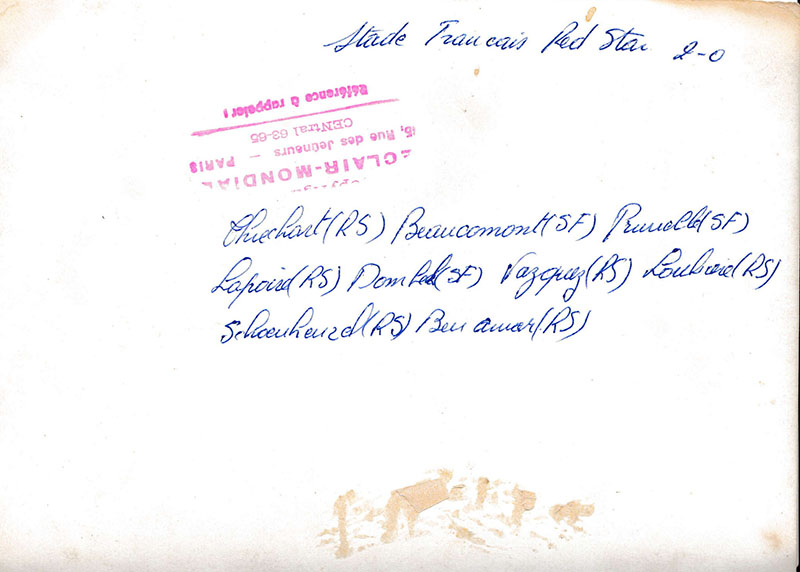 Stade Francais Red Star 2-0
Référence à rappeler :
CENtral 63-65
15, Rue des Jeûneurs — PARIS
ECLAIR-MONDIAL
Thiechart (RS) Beaucomont (SF) Prunelle (SF)
Lapoire (RS) Dombek (SF) Vazquez (RS) (RS)
(RS) Ben amar (RS)